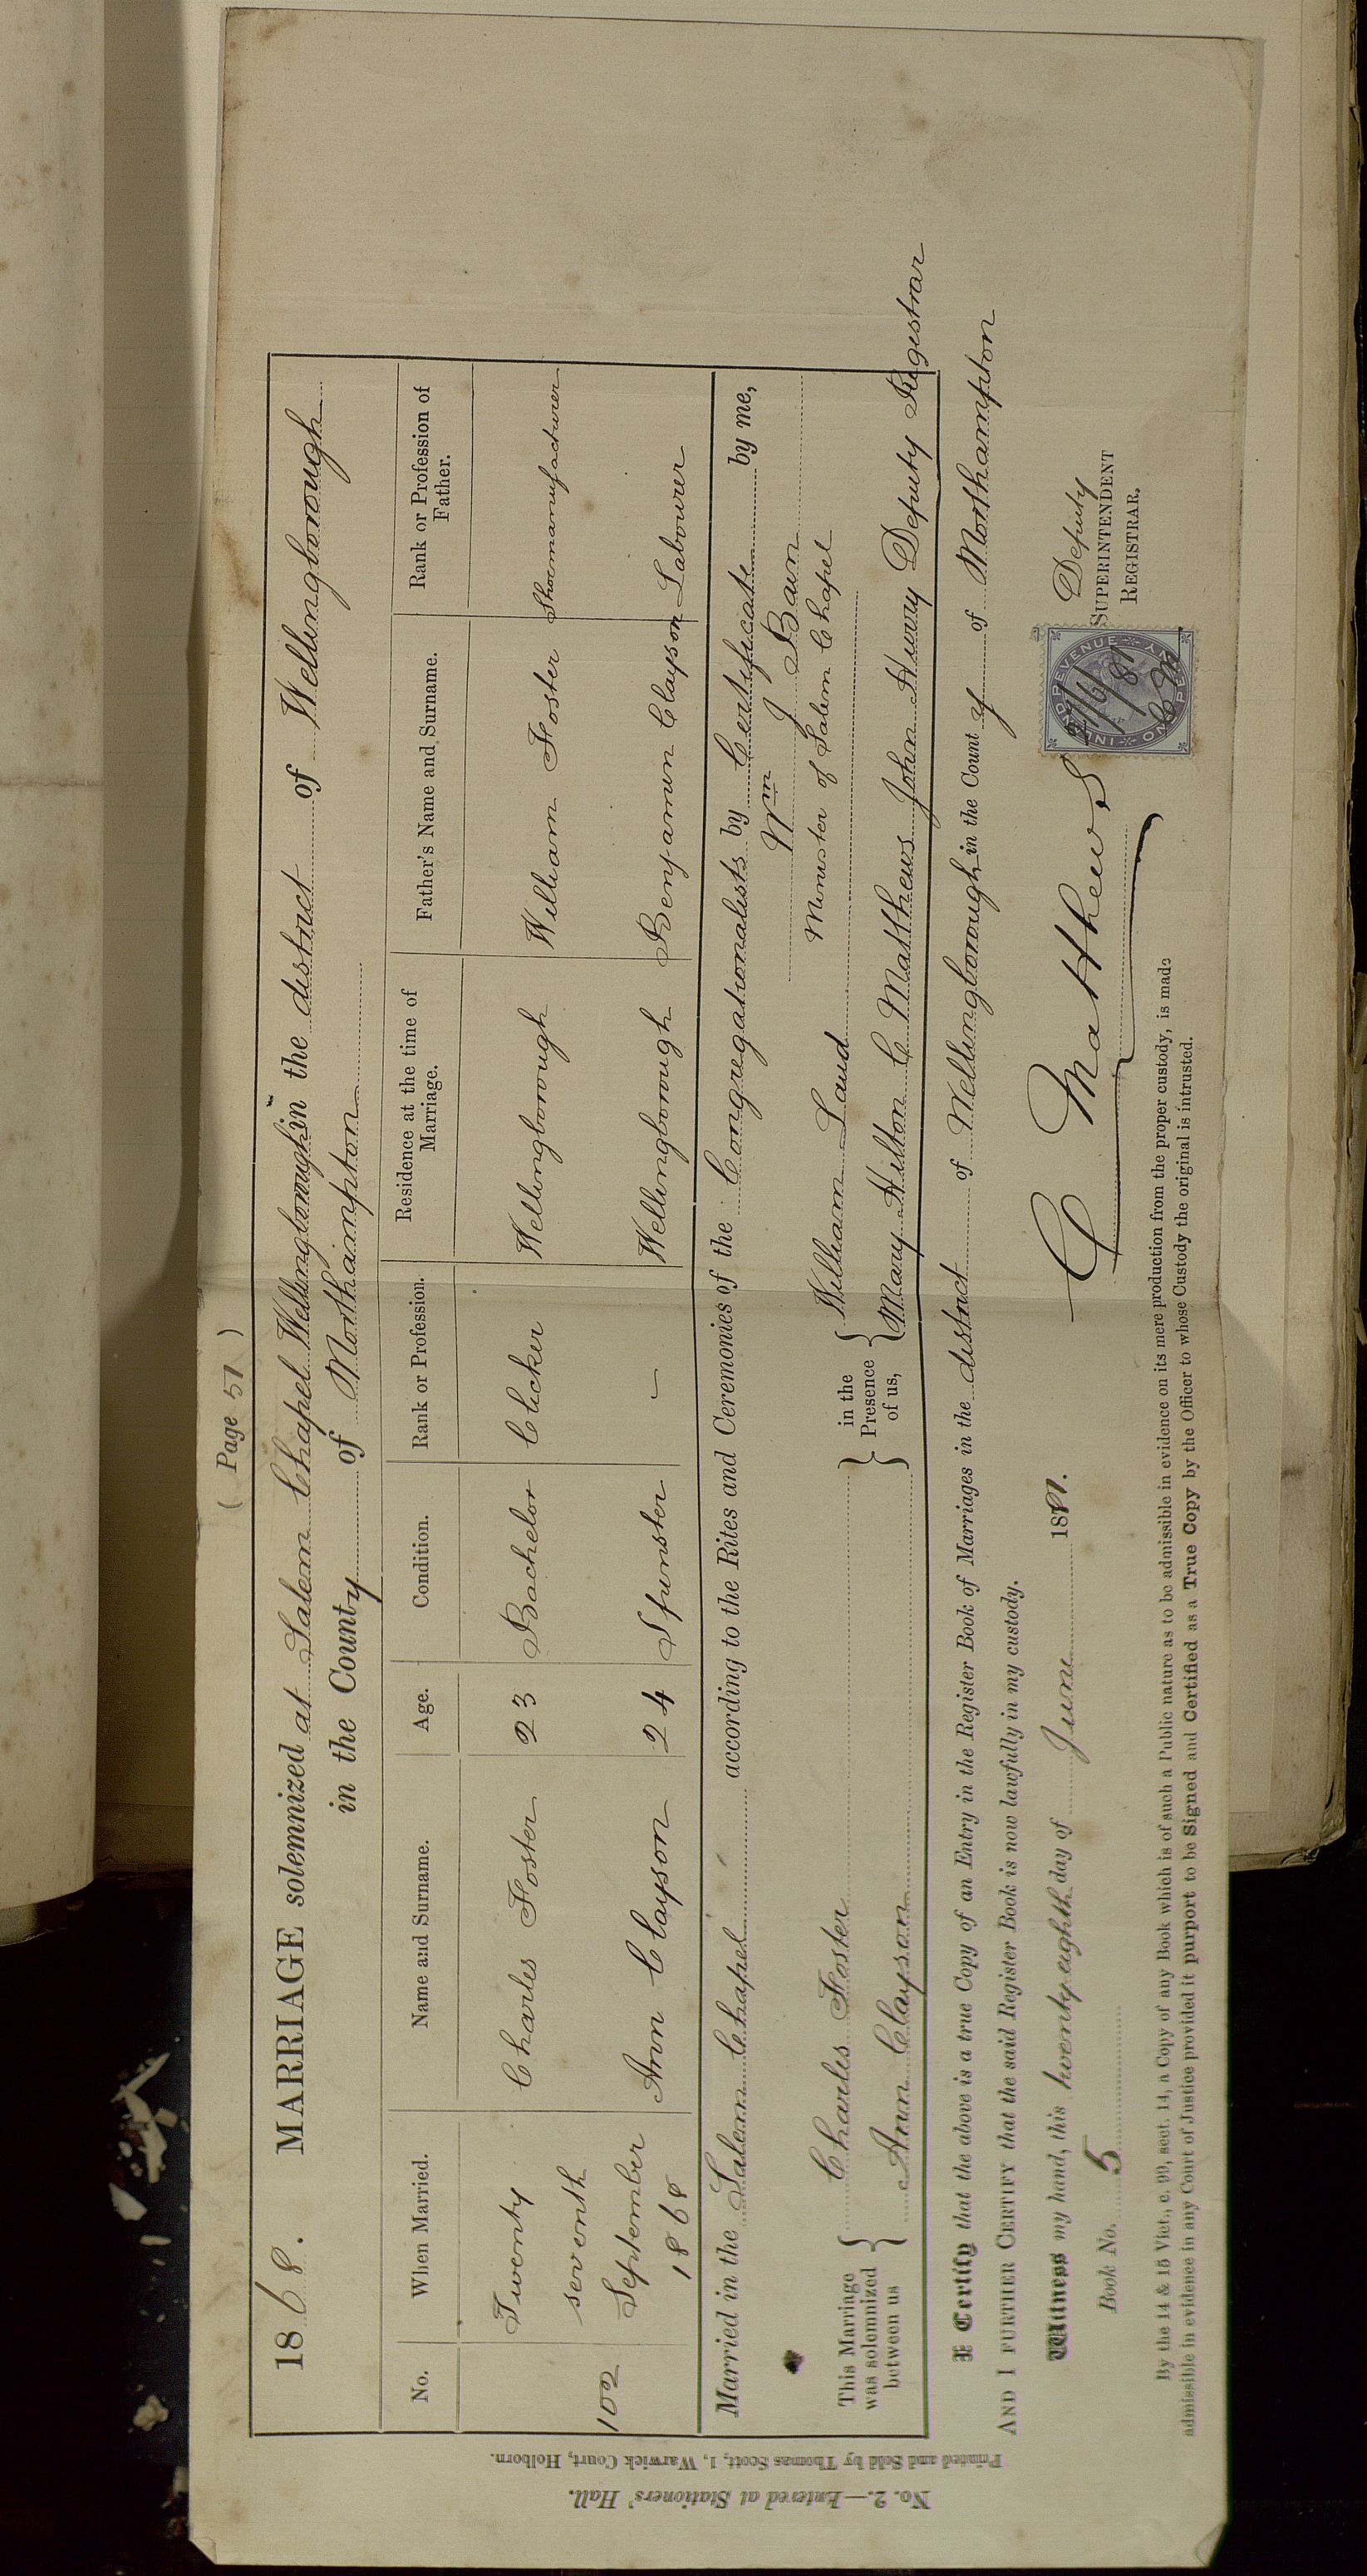 ( Page 51 )
1868. MARRIAGE solemnized at Salem Chapel Wellingborough in the district of Wellingborough
in the County of Northampton
No. When Married. Name and Surname. Age. Condition. Rank or Profession. Residence at the time of Marriage. Father's Name and Surname. Rank or Profession of Father.
102 Twenty seventh September 1868
Charles Foster 23 Bachelor Clicker Wellingborough William Foster Shoemanufacturer
Ann Clayson 24 Spinster — Wellingborough Benjamin Clayson Labourer
Married in the Salem Chapel according to the Rites and Ceremonies of the Congregationalists by Certificate by me,
Wm J Bain
Minister of Salem Chapel
This Marriage was solemnized between us { Charles Foster } in the Presence of us, { William Laud
Ann Clayson Mary Hilton C Matthews John Hurry Deputy Registrar
I Certify that the above is a true Copy of an Entry in the Register Book of Marriages in the district of Wellingborough in the County of Northampton
AND I FURTHER CERTIFY that the said Register Book is now lawfully in my custody.
Witness my hand, this twenty eighth day of June 1881.
C Matthews
Deputy
SUPERINTENDENT
REGISTRAR.
INLAND REVENUE
ONE PENNY
CM
Book No. 5
By the 14 & 15 Vict., c. 99, sect. 14, a Copy of any Book which is of such a Public nature as to be admissible in evidence on its mere production from the proper custody, is made
admissible in evidence in any Court of Justice provided it purport to be Signed and Certified as a True Copy by the Officer to whose Custody the original is intrusted.
Printed and Sold by Thomas Scott, 1, Warwick Court, Holborn.
No. 2.—Entered at Stationers' Hall.